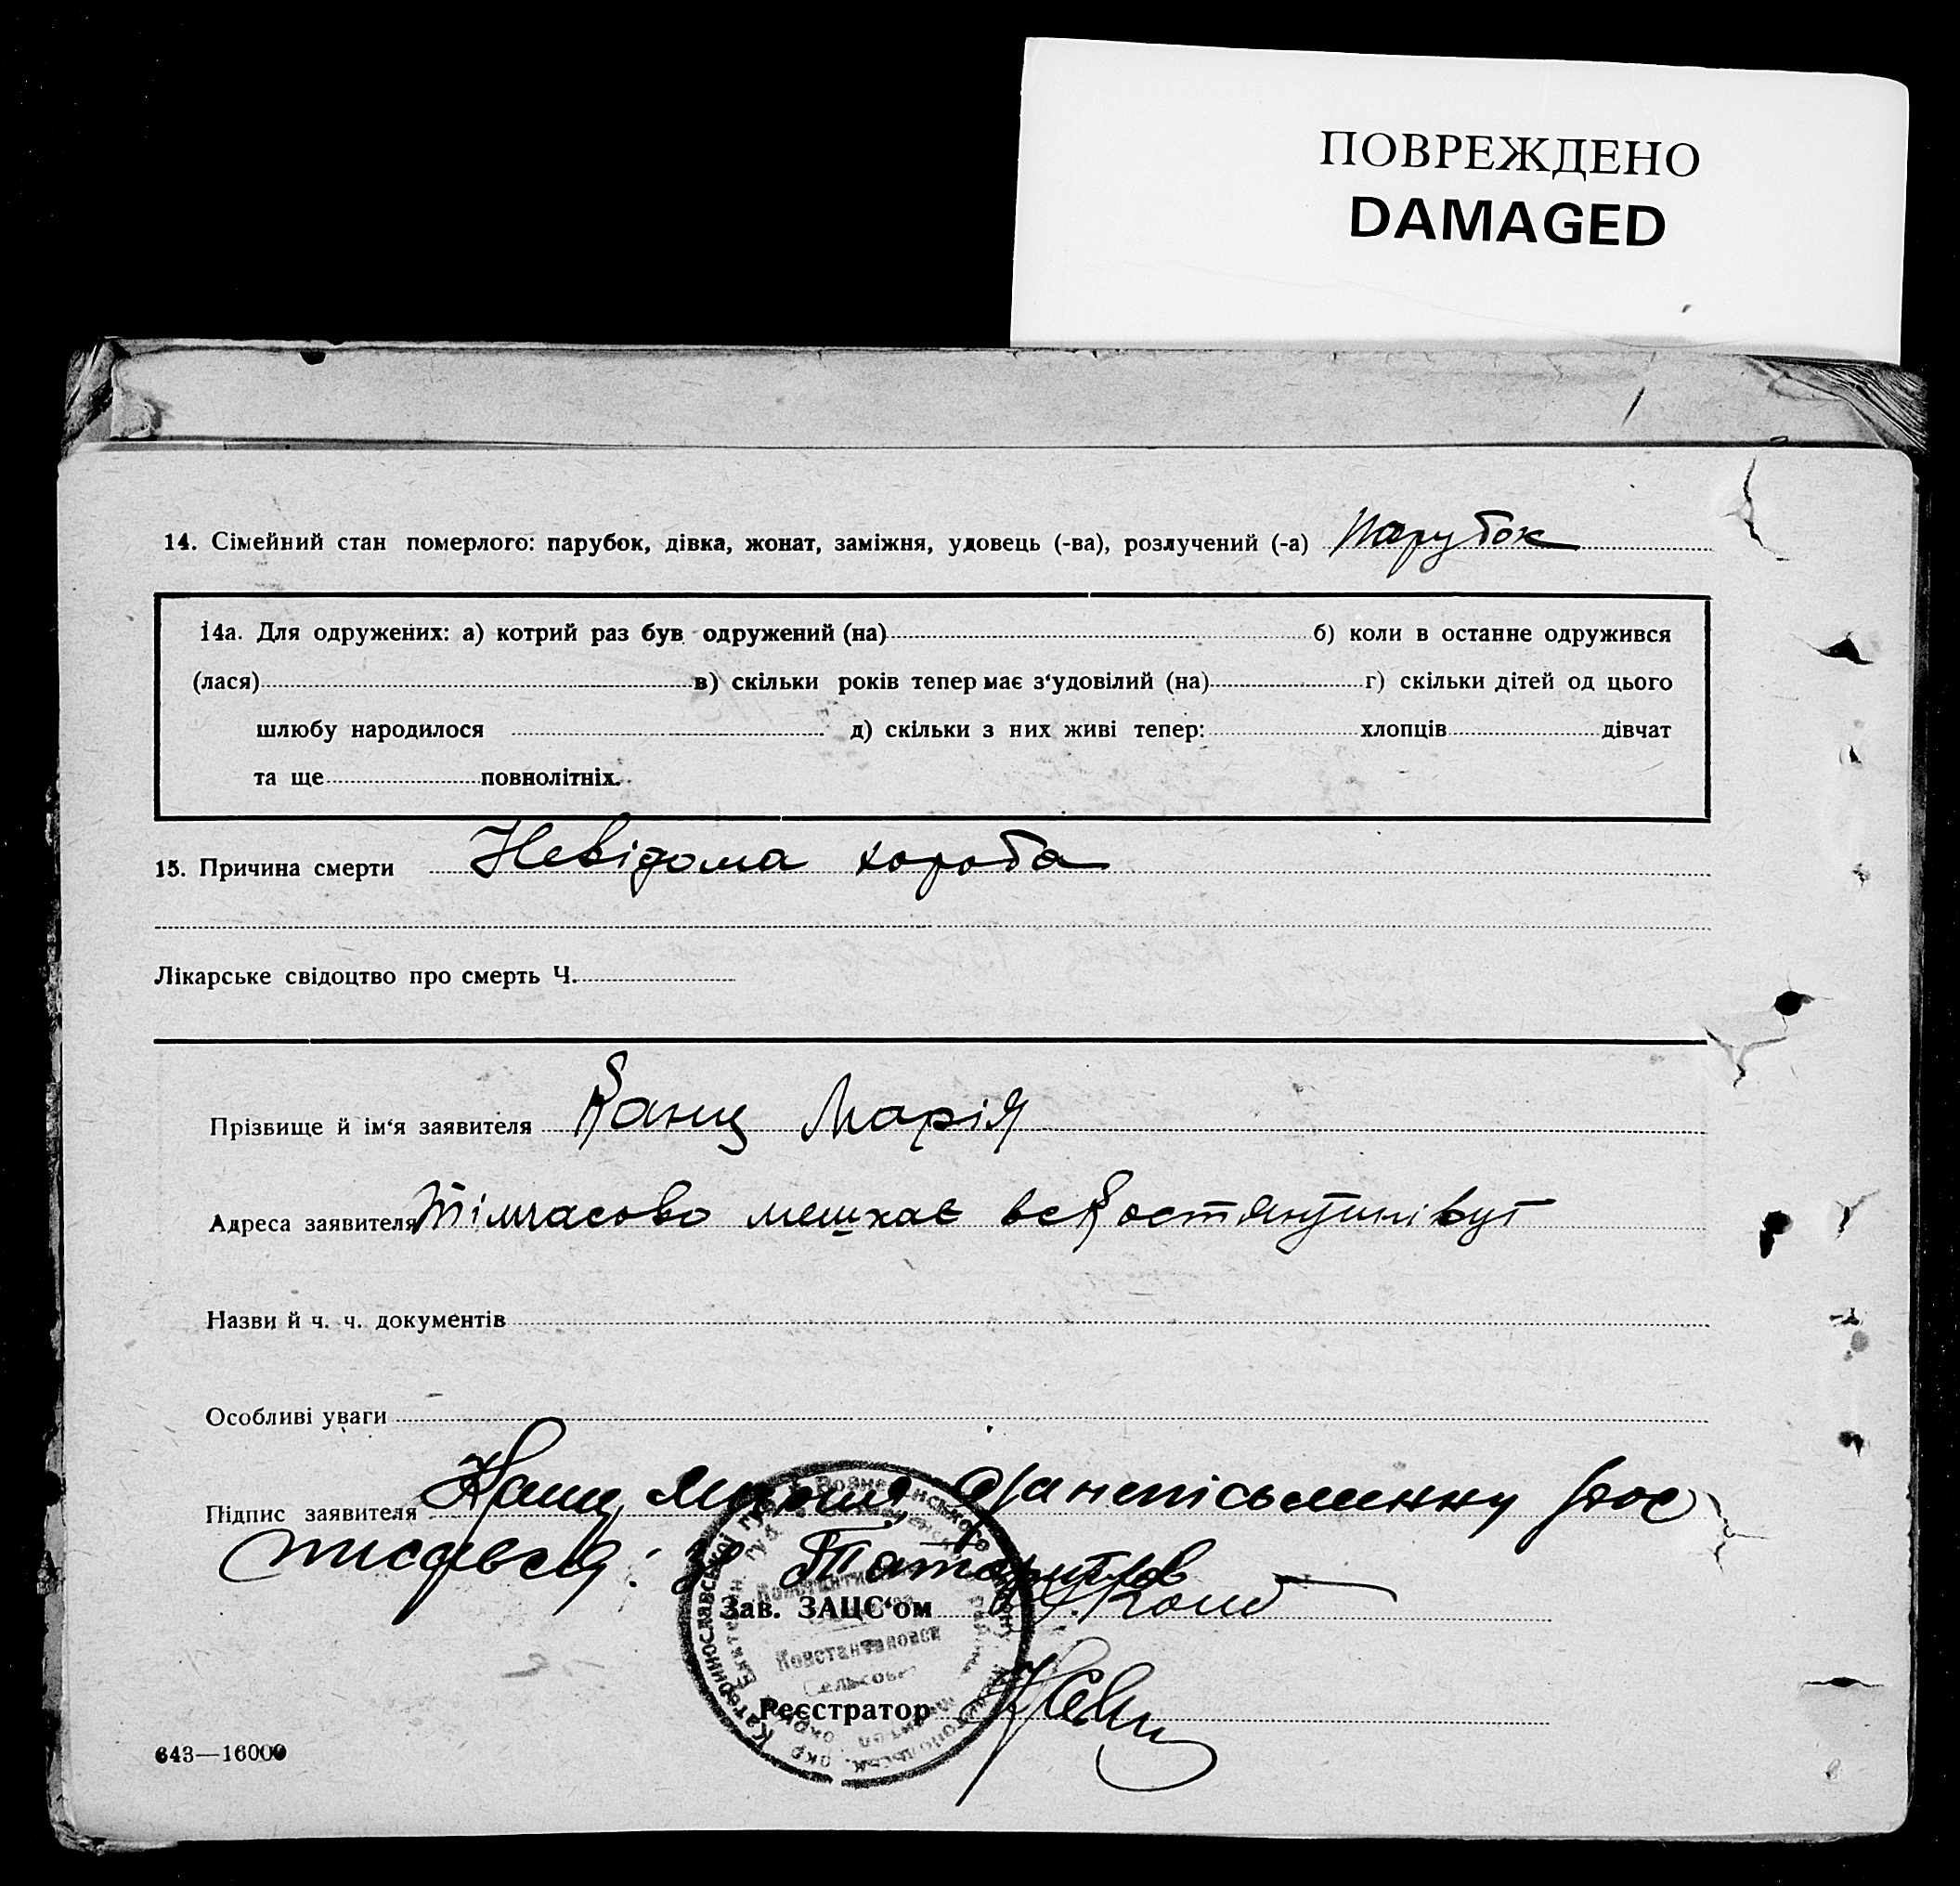 ПОВРЕЖДЕНО
DAMAGED
14. Сімейний стан померлого: парубок, дівка, жонат, заміжня, удовець (-ва), розлучений (-а) Парубок
14а. Для одружених: а) котрий раз був одружений (на) б) коли в останне одружився
(лася) в) скільки років тепер має з‘удовілий (на) г) скільки дітей од цього
шлюбу народилося д) скільки з них живі тепер: хлопців дівчат
та ще повнолітніх.
15. Причина смерти Невідома хороба
Лікарське свідоцтво про смерть Ч.
Прізвище й ім‘я заявителя Канц Марія
Адреса заявителя Тімчасово мешкає
Назви й ч. ч. документів
Особливі уваги
Підпис заявителя Канц неписьменну
Зав. ЗАЦС‘ом
Реєстратор
643—16000